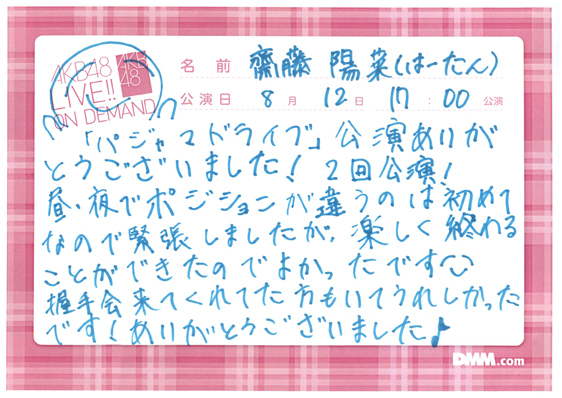 AKB48
LIVE!!
ON DEMAND
AKB
48
名前 齋藤 陽菜(はーたん)
公演日 8月 12日 17:00 公演
「パジャマドライブ」公演ありが
とうございました! 2回公演!
昼・夜でポジションが違うのは初めて
なので緊張しましたが、楽しく終わる
ことができたのでよかったです
握手会来てくれてた方もいてうれしかった
です!ありがとうございました♪
DMM.com